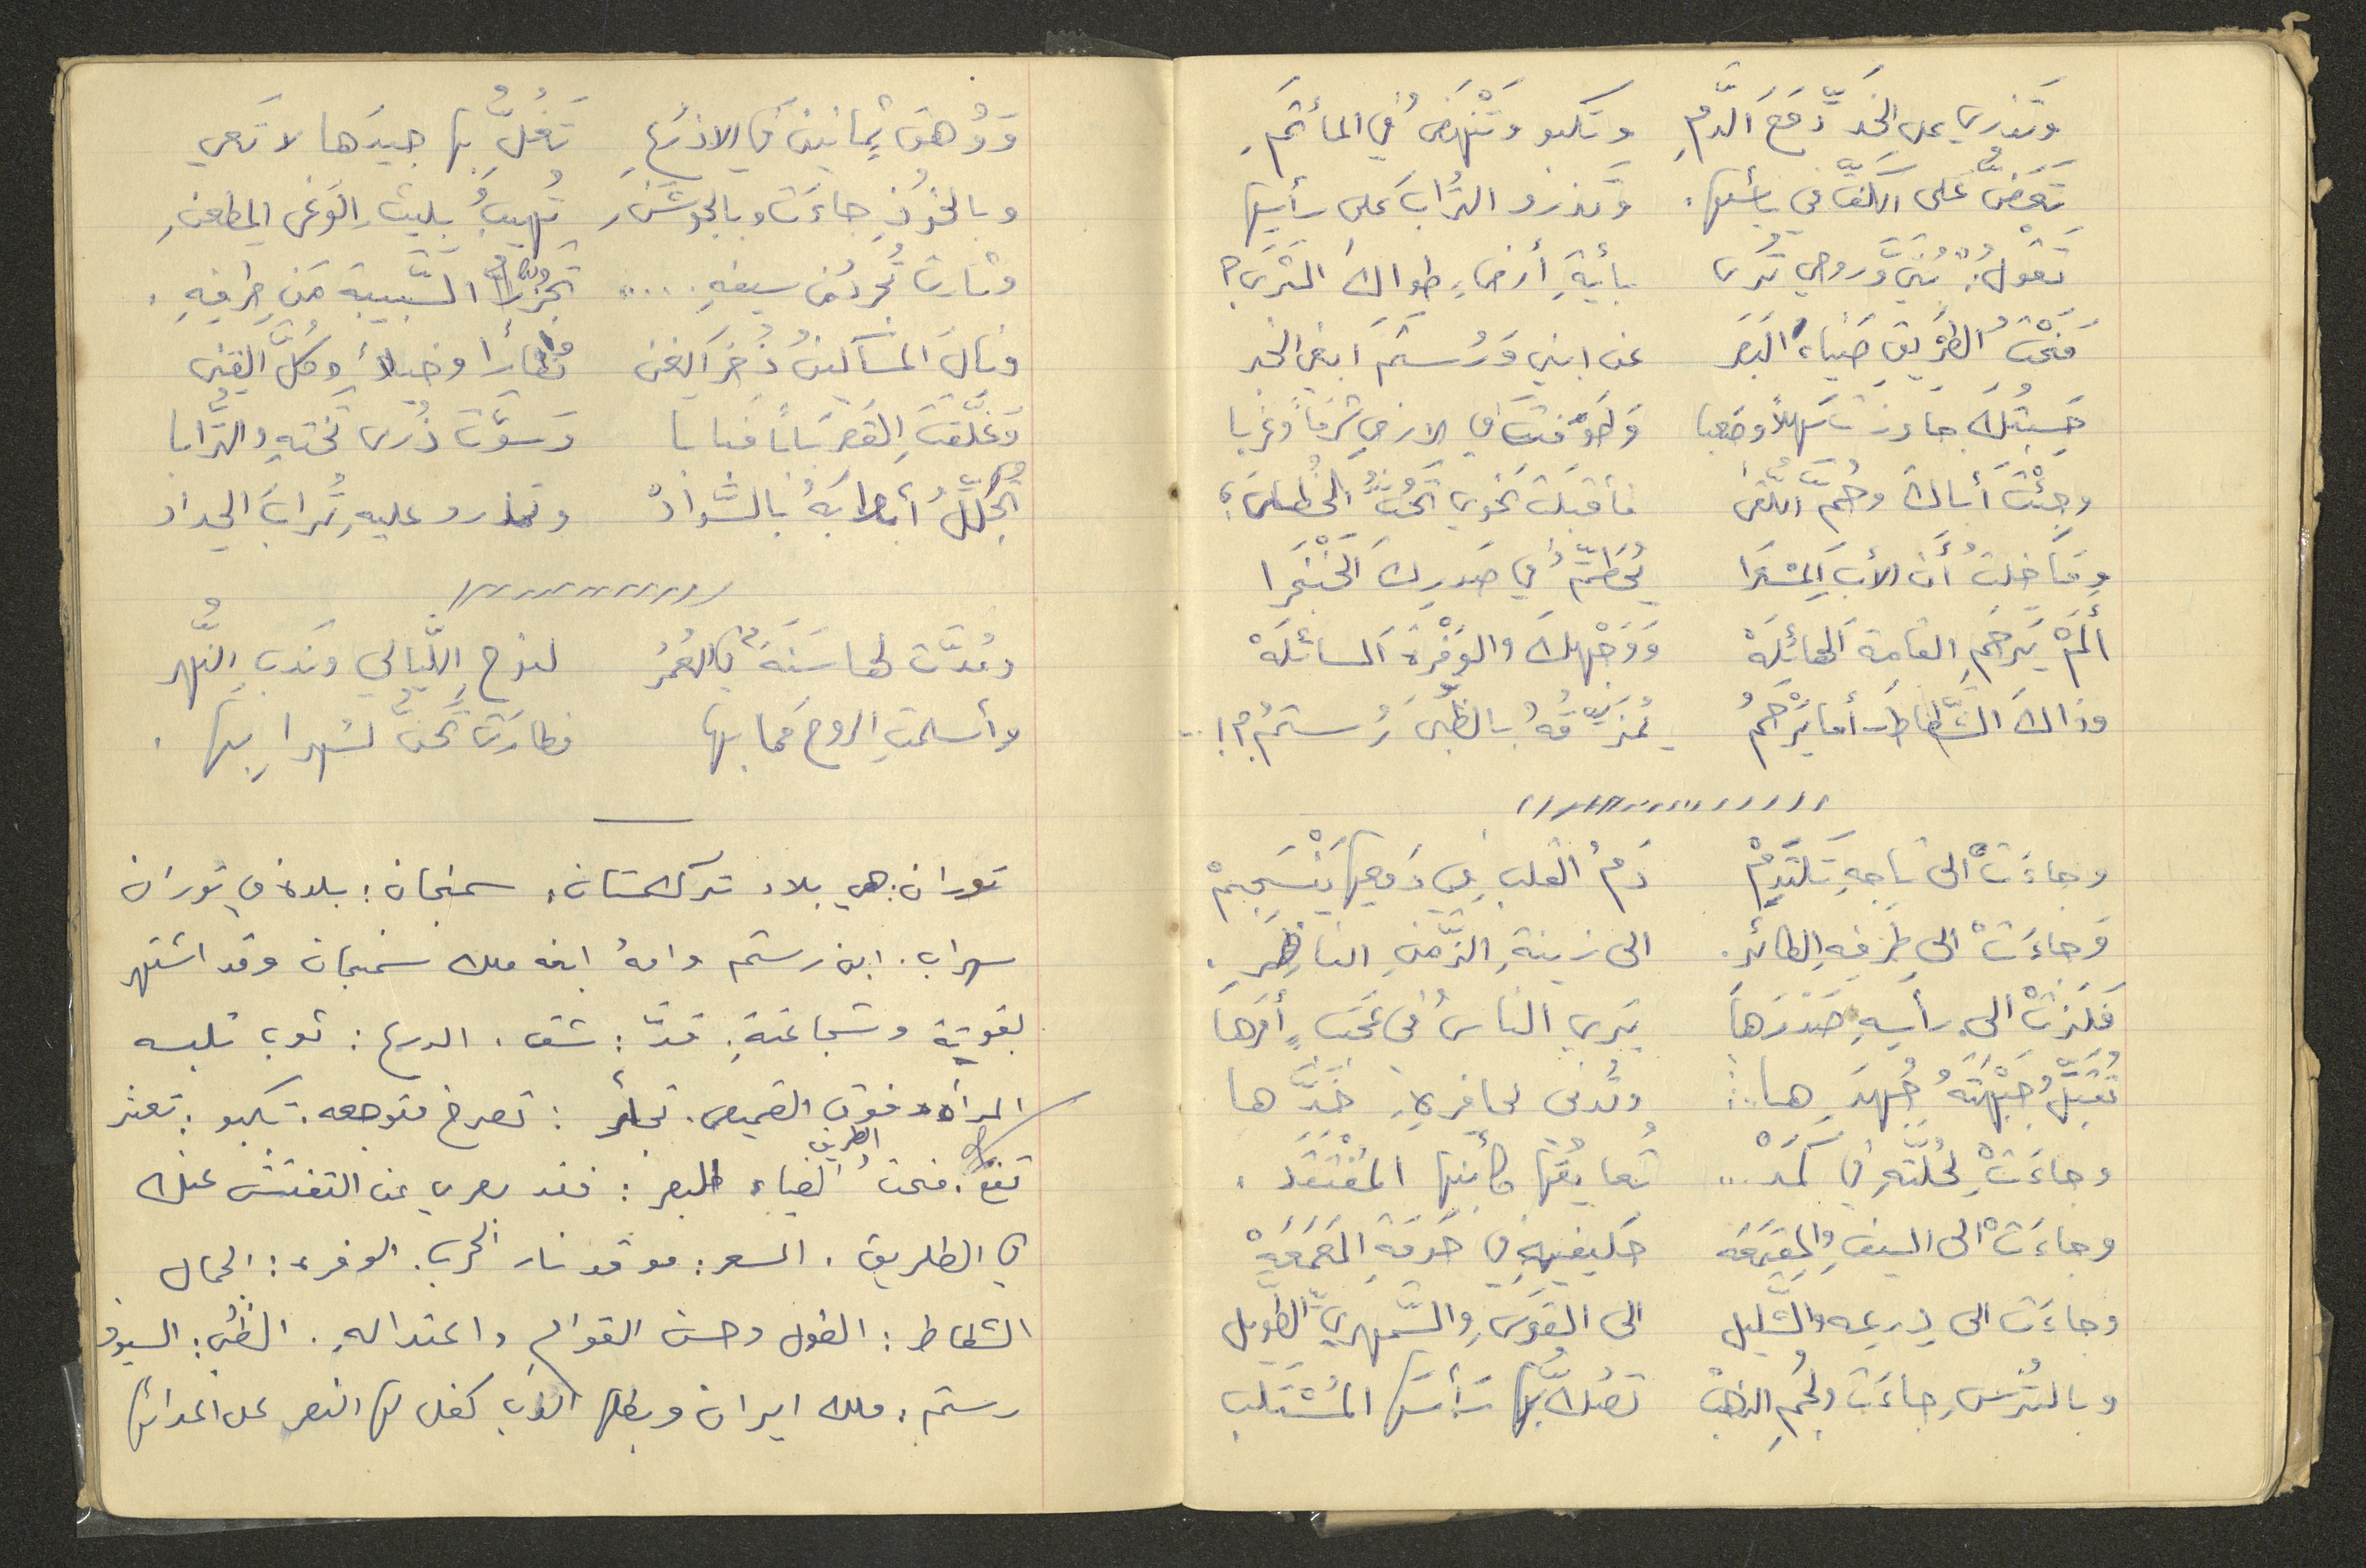 وتذري على الخدِّ دَمعَ الدَّمِ    وتكبو وتَنْهَضُ في المأتمِ
تَعَضُّ على الكفِّ في يأسها.    وتذرو الترابَ على رأسِها
تقولُ: "بُنَيَّ وروحي تُرى    بأيةِ أرضٍ طواك الثرى؟
فَتَحْتُ الطريقَ ضياءَ البَصَر    عن ابني ورُستَمَ ابغي الخبر
حَسِبتُكَ جاوزتَ سهلاً وصعبا    وطوّفتَ في الارضِ شرقاً وغربا
وجِئْتَ أباكَ وحُمَّ اللّقا    فأقبلتَ نحوي تَحُثُّ الخُطى؛
وما خلتُ أن الأبَ المِسْعَرا    يُحَطِّمُ في صَدرِكَ الخَنْجَرا
ألَمْ يَرحَمِ القامةَ الهائلَهْ    وَوَجْهَكَ والوَفْرَةَ السائلَهْ
وذاكَ الشَّطاطَ أما يَرْحَمُ    يُمَزِّقُهُ بالظُّبى رُستمُ؟!..
وجاءَتْ الى تاجهِ تَلتدِمْ    دَمُ القلبِ في دَمعِها يَنْسَجِمْ
وَجاءَتْ الى طِرفِهِ الطائرِ.    الى زينةِ الزَّمنِ الناظرِ.
فَلَزّتْ الى رأسِهِ صَدْرَها    يَرى الناسُ في عَجَبٍ أمرَها
تُقَبِّلُ جَبْهَتَهُ جُهدَها..:    وتُدني لحافرِهِ خَدَّها
وجاءَتْ لحُلّتهِ في كَمَدْ..    تُعانِقُها كأبنِها المُفْتَقَد.
وجاءَتْ الى السيفِ والمِقمَعَه    حَليفيهِ في حَومَةِ المَعمَعَهْ
وجاءَت الى دِرعِه والشَّليل    الى القوسِ والسَّمهريِّ الطويل
وبالتُّرسِ جاءَت ولُجُمِ الذهب    تَصُكُّ بها رأسَها المُسْتَلَب
وَوُهقٍ ثمانينَ في الاذرُعِ    تَغُلُّ بها جيدَها لا تَعي
وبالخُوَذِ جاءَت وبالجوشَنِ    تُهيبُ بليثِ الوَغى المطعنِ
وثارت تُجرّدُ من سيفهِ....    تَجُزُّ السَّبيبةَ من طِرفِهِ.
ونالَ المساكينُ ذُخرَ الغنى    نُضاراً وخيلاً وكلَّ القِنى
وَغلّقتِ القصرَ باباً فبابا    وسَوَّت ذُرى تختهِ والترابا
تُجَلّلُ أبوابَهُ بالسَّوادْ    وتذرو عليهِ تُرابَ الحداد
ومُدَّت لها سَنَةٌ في العُمُرْ    لنوحِ اللّيالي وندبِ النُّهر
وأسلمتِ الروحَ مما بها    فطارَت تَحِنُّ لسُهرابِها.
توران: هي بلاد تركستان، سمنجان: بلدة في توران
سهراب. ابن رستم وامهُ ابنة ملك سمنجان وقد اشتهر
بقوته وشجاعته. قدَّ: شق. الدرع: ثوب تلبسه
المرأة فوق القميص. تجأر: تصرخ متوجعه. تكبو: تعثر
تقع. فتحتُ الطريق ضياء البصر: فقد بصري عن التفتش عنك
في الطريق. المسعر: موقد نار الحرب. الوفرة: الجمال
الشطاط: الطول وحسن القوام واعتداله. الظبى: السيوف
رستم: ملك ايران وبطلها الذي كفل لها النصر على اعدائها